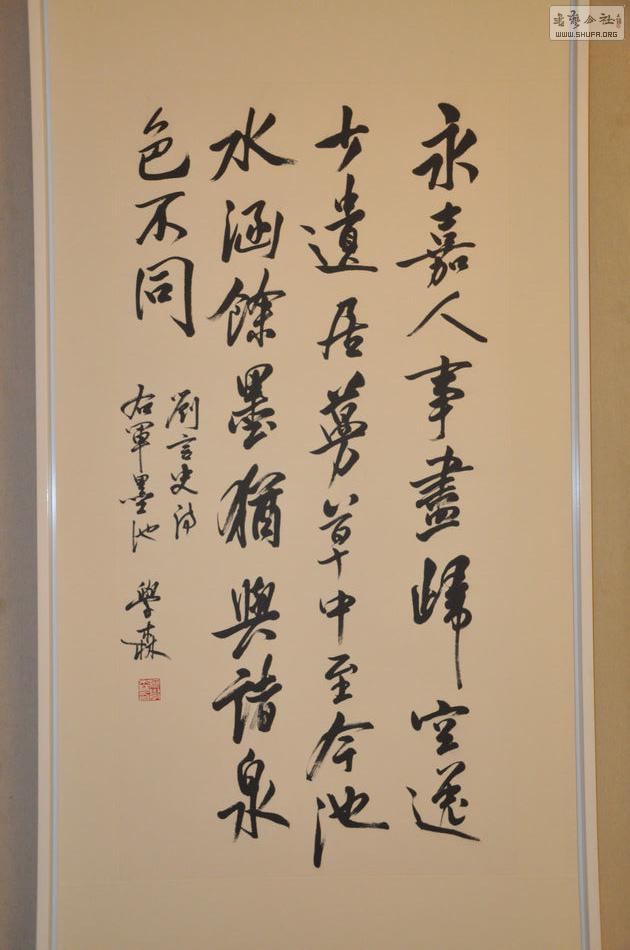 永嘉人事盡歸空逸
少遺居蔓草中至今池
水涵餘墨猶與諸泉
色不同
劉言史詩
右軍墨池 學森
書藝公社
WWW.SHUFA.ORG